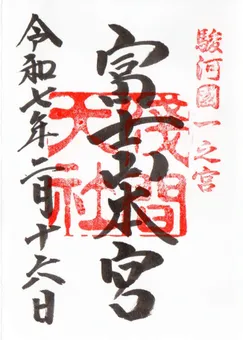 駿河國一之宮
富士山本宮
淺間
大社
令和七年二月十六日